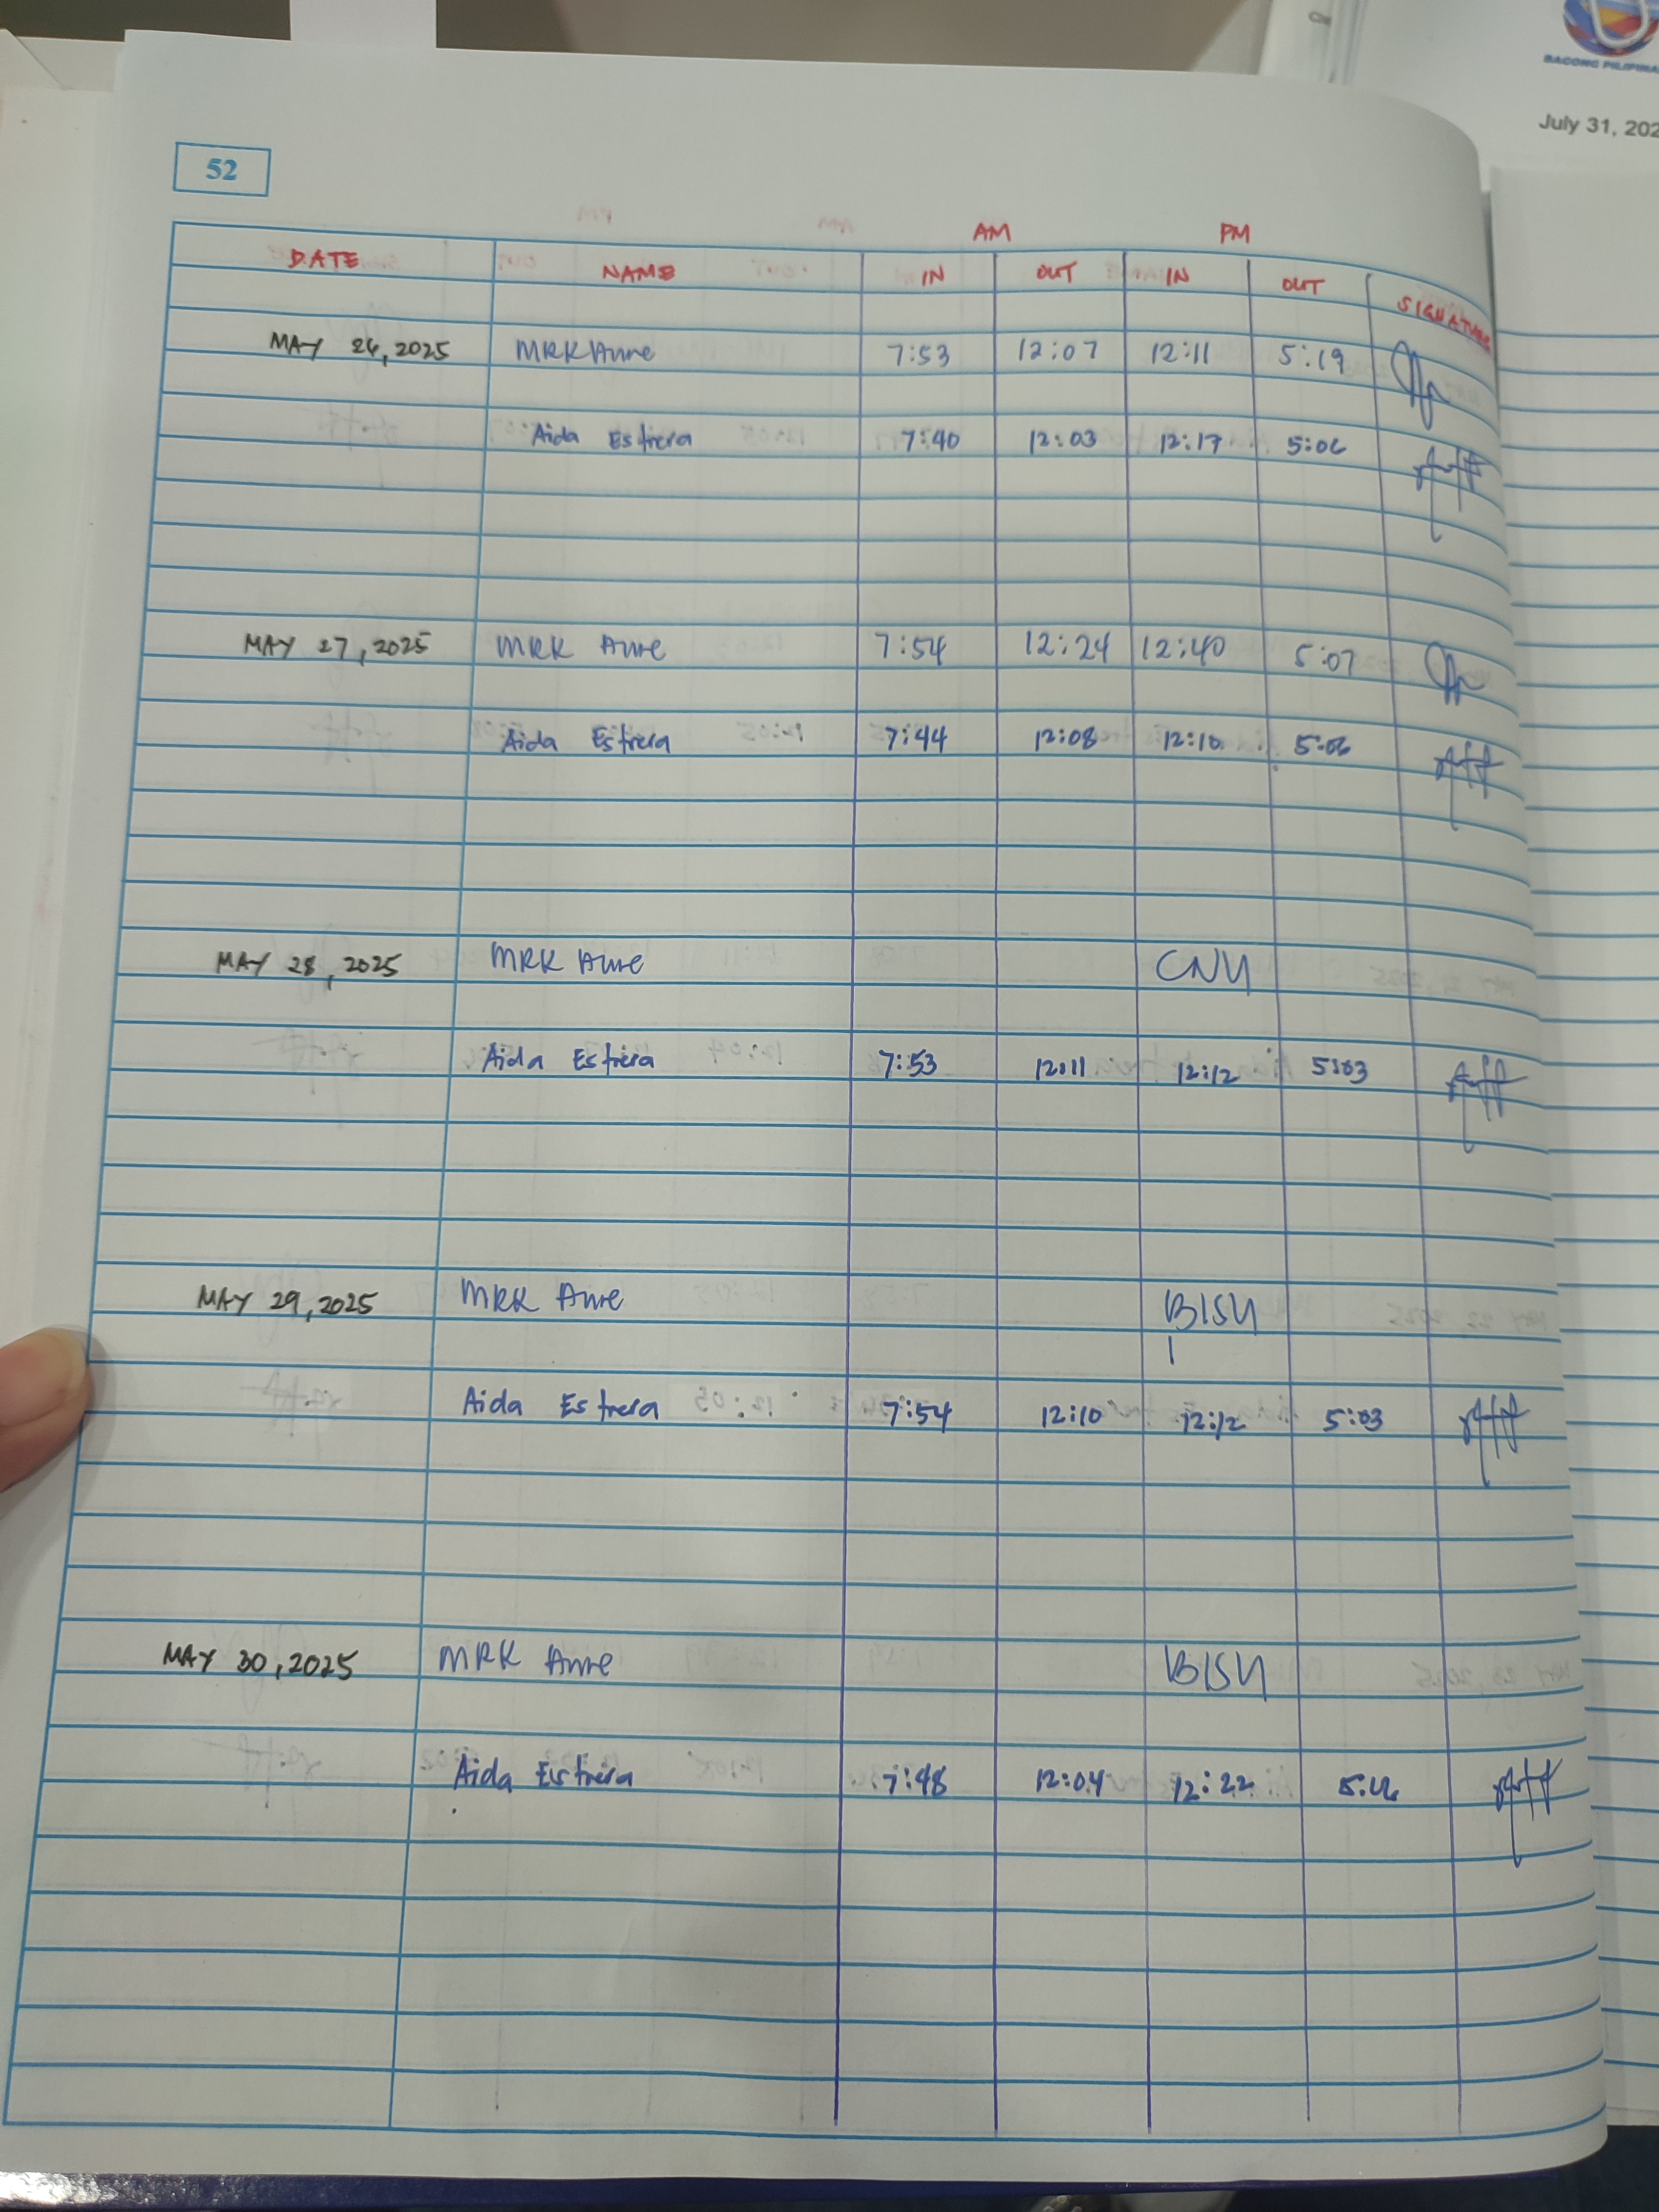 BAGONG PILIPINAS
July 31, 202
52
AM PM
DATE NAME IN OUT IN OUT SIGNATURE
MAY 26, 2025 MRK Aure 7:53 12:07 12:11 5:19
Aida Estrera 7:40 12:03 12:17 5:06
MAY 27, 2025 MRK Aure 7:54 12:24 12:40 5:07
Aida Estrera 7:44 12:08 12:10 5:06
MAY 28, 2025 MRK Aure CNU
Aida Estrera 7:53 12:11 12:12 5:03
MAY 29, 2025 MRK Aure BISU
Aida Estrera 7:54 12:10 12:12 5:03
MAY 30, 2025 MRK Aure BISU
Aida Estrera 7:48 12:04 12:22